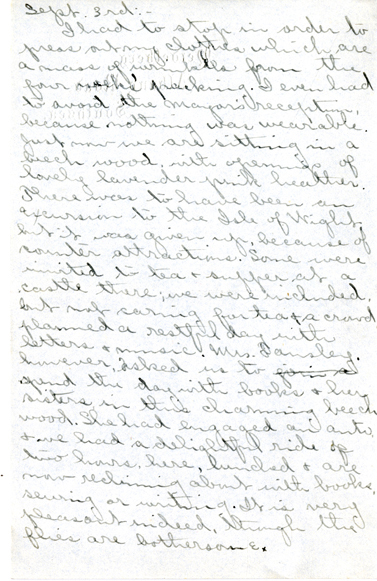 Sept. 3rd:-
I had to stop in order to
press out my clothes which are
a mass of wrinkles from the
four weeks' packing. I even had
to avoid the Mayor's reception,
because nothing was wearable.
Just now we are sitting in a
beech wood, with openings of
lovely lavender pink heather.
There was to have been an
excursion to the Isle of Wight,
but it was given up, because of
counter attractions. Some were
invited to tea & supper at a
castle there; we were included,
but not caring for tea & a crowd
planned a restful day with
letters & music. Mrs. Tansley,
however, asked us to
spend the day with books & her
sisters in this charming beech
wood. She had engaged an auto,
& we had a delightful ride of
two hours, here, lunched & are
now reclining about with books,
sewing or writing. It is very
pleasant indeed, though the
flies are bothersome.